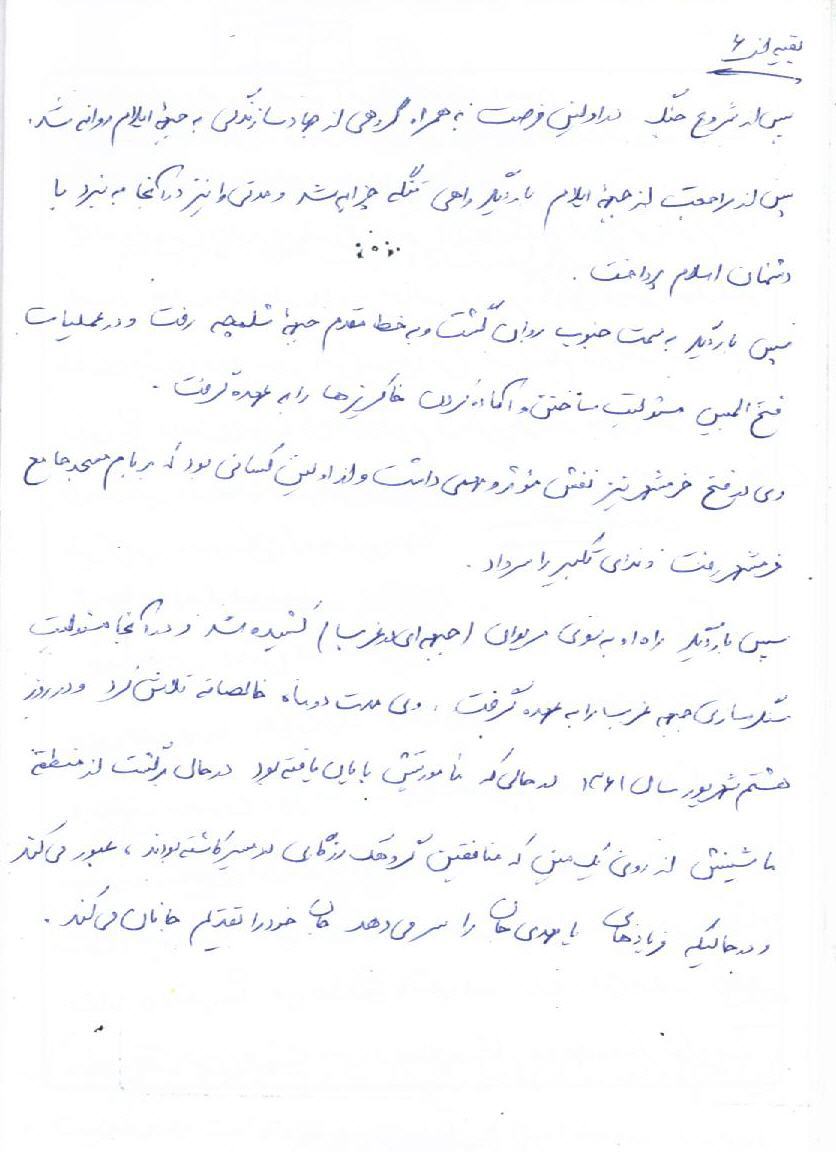 بقیه از ۶
پس از شروع جنگ در اولین فرصت به همراه گروهی از جهاد سازندگی به جبهۀ ایلام روانه شد.
پس از مراجعت از جبهۀ ایلام بار دیگر راهی تنگه چزابه شد و مدتی را نیز در آنجا به نبرد با
دشمنان اسلام پرداخت.
سپس بار دیگر به سمت جنوب روان گشت و به خط مقدم جبهۀ شلمچه رفت و در عملیات
فتح المبین مسئولیت ساختن و آماده کردن خاکریزها را به عهده گرفت.
وی در فتح خرمشهر نیز نقش مؤثر و مهمی داشت و از اولین کسانی بود که بر بام مسجد جامع
خرمشهر رفت و ندای تکبیر را سر داد.
سپس بار دیگر راه او به سوی مریوان (جبهه ای در غرب) کشیده شد و در آنجا مسئولیت
سنگرسازی جبهه غرب را به عهده گرفت. وی مدت دو ماه خالصانه تلاش کرد و در روز
هشتم شهریور سال ۱۳۶۱ در حالی که مأموریتش پایان یافته بود در حال برگشت از منطقه
ماشینش از روی یک مین که منافقین گروهک رزگاری در مسیر کاشته بودند، عبور می کند
و در حالیکه فریادهای یا مهدی جان را سر می دهد جان خود را تقدیم جانان می کند.